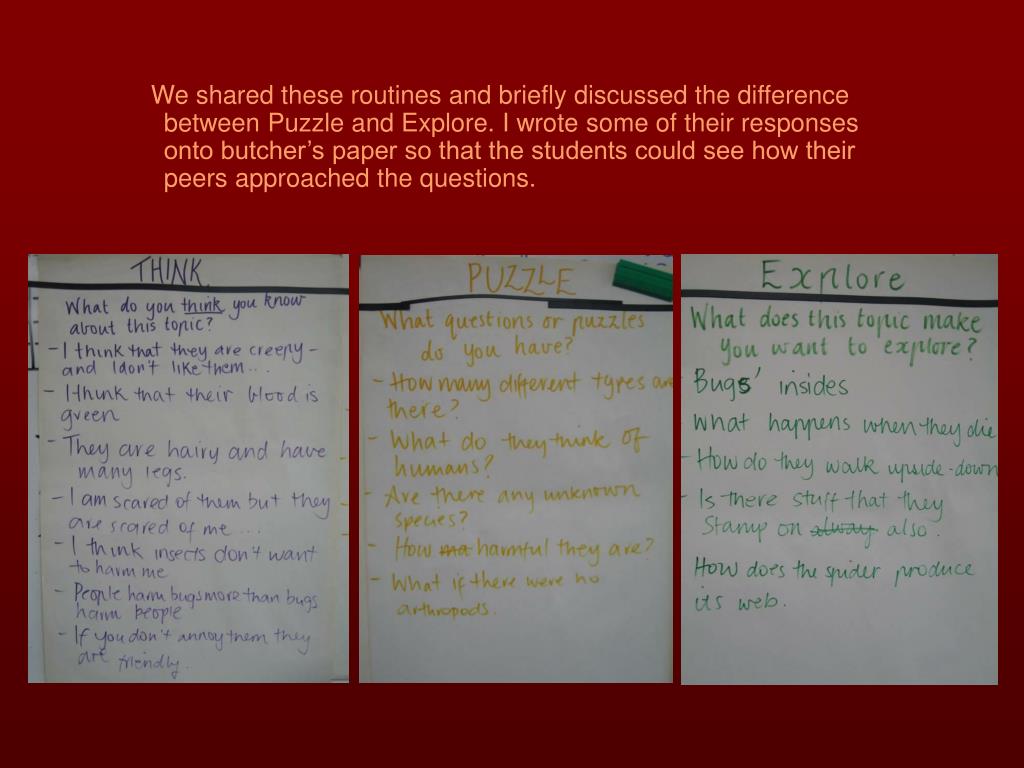 We shared these routines and briefly discussed the difference
between Puzzle and Explore. I wrote some of their responses
onto butcher's paper so that the students could see how their
peers approached the questions.
THINK
What do you think you know
about this topic?
- I think that they are creepy -
and I don't like them...
- I think that their blood is
green
- They are hairy and have
many legs.
- I am scared of them but they
are scared of me ....
- I think insects don't want
to harm me
- People harm bugs more than bugs
harm people
- If you don't annoy them they
are friendly.
PUZZLE
What questions or puzzles
do you have?
- How many different types are
there?
- What do they think of
humans?
- Are there any unknown
species?
- How ma harmful they are?
- What if there were no
arthropods.
Explore
What does this topic make
you want to explore?
Bugs' insides
What happens when they die
- How do they walk upside-down
- Is there stuff that they
stamp on alway also.
How does the spider produce
its web.